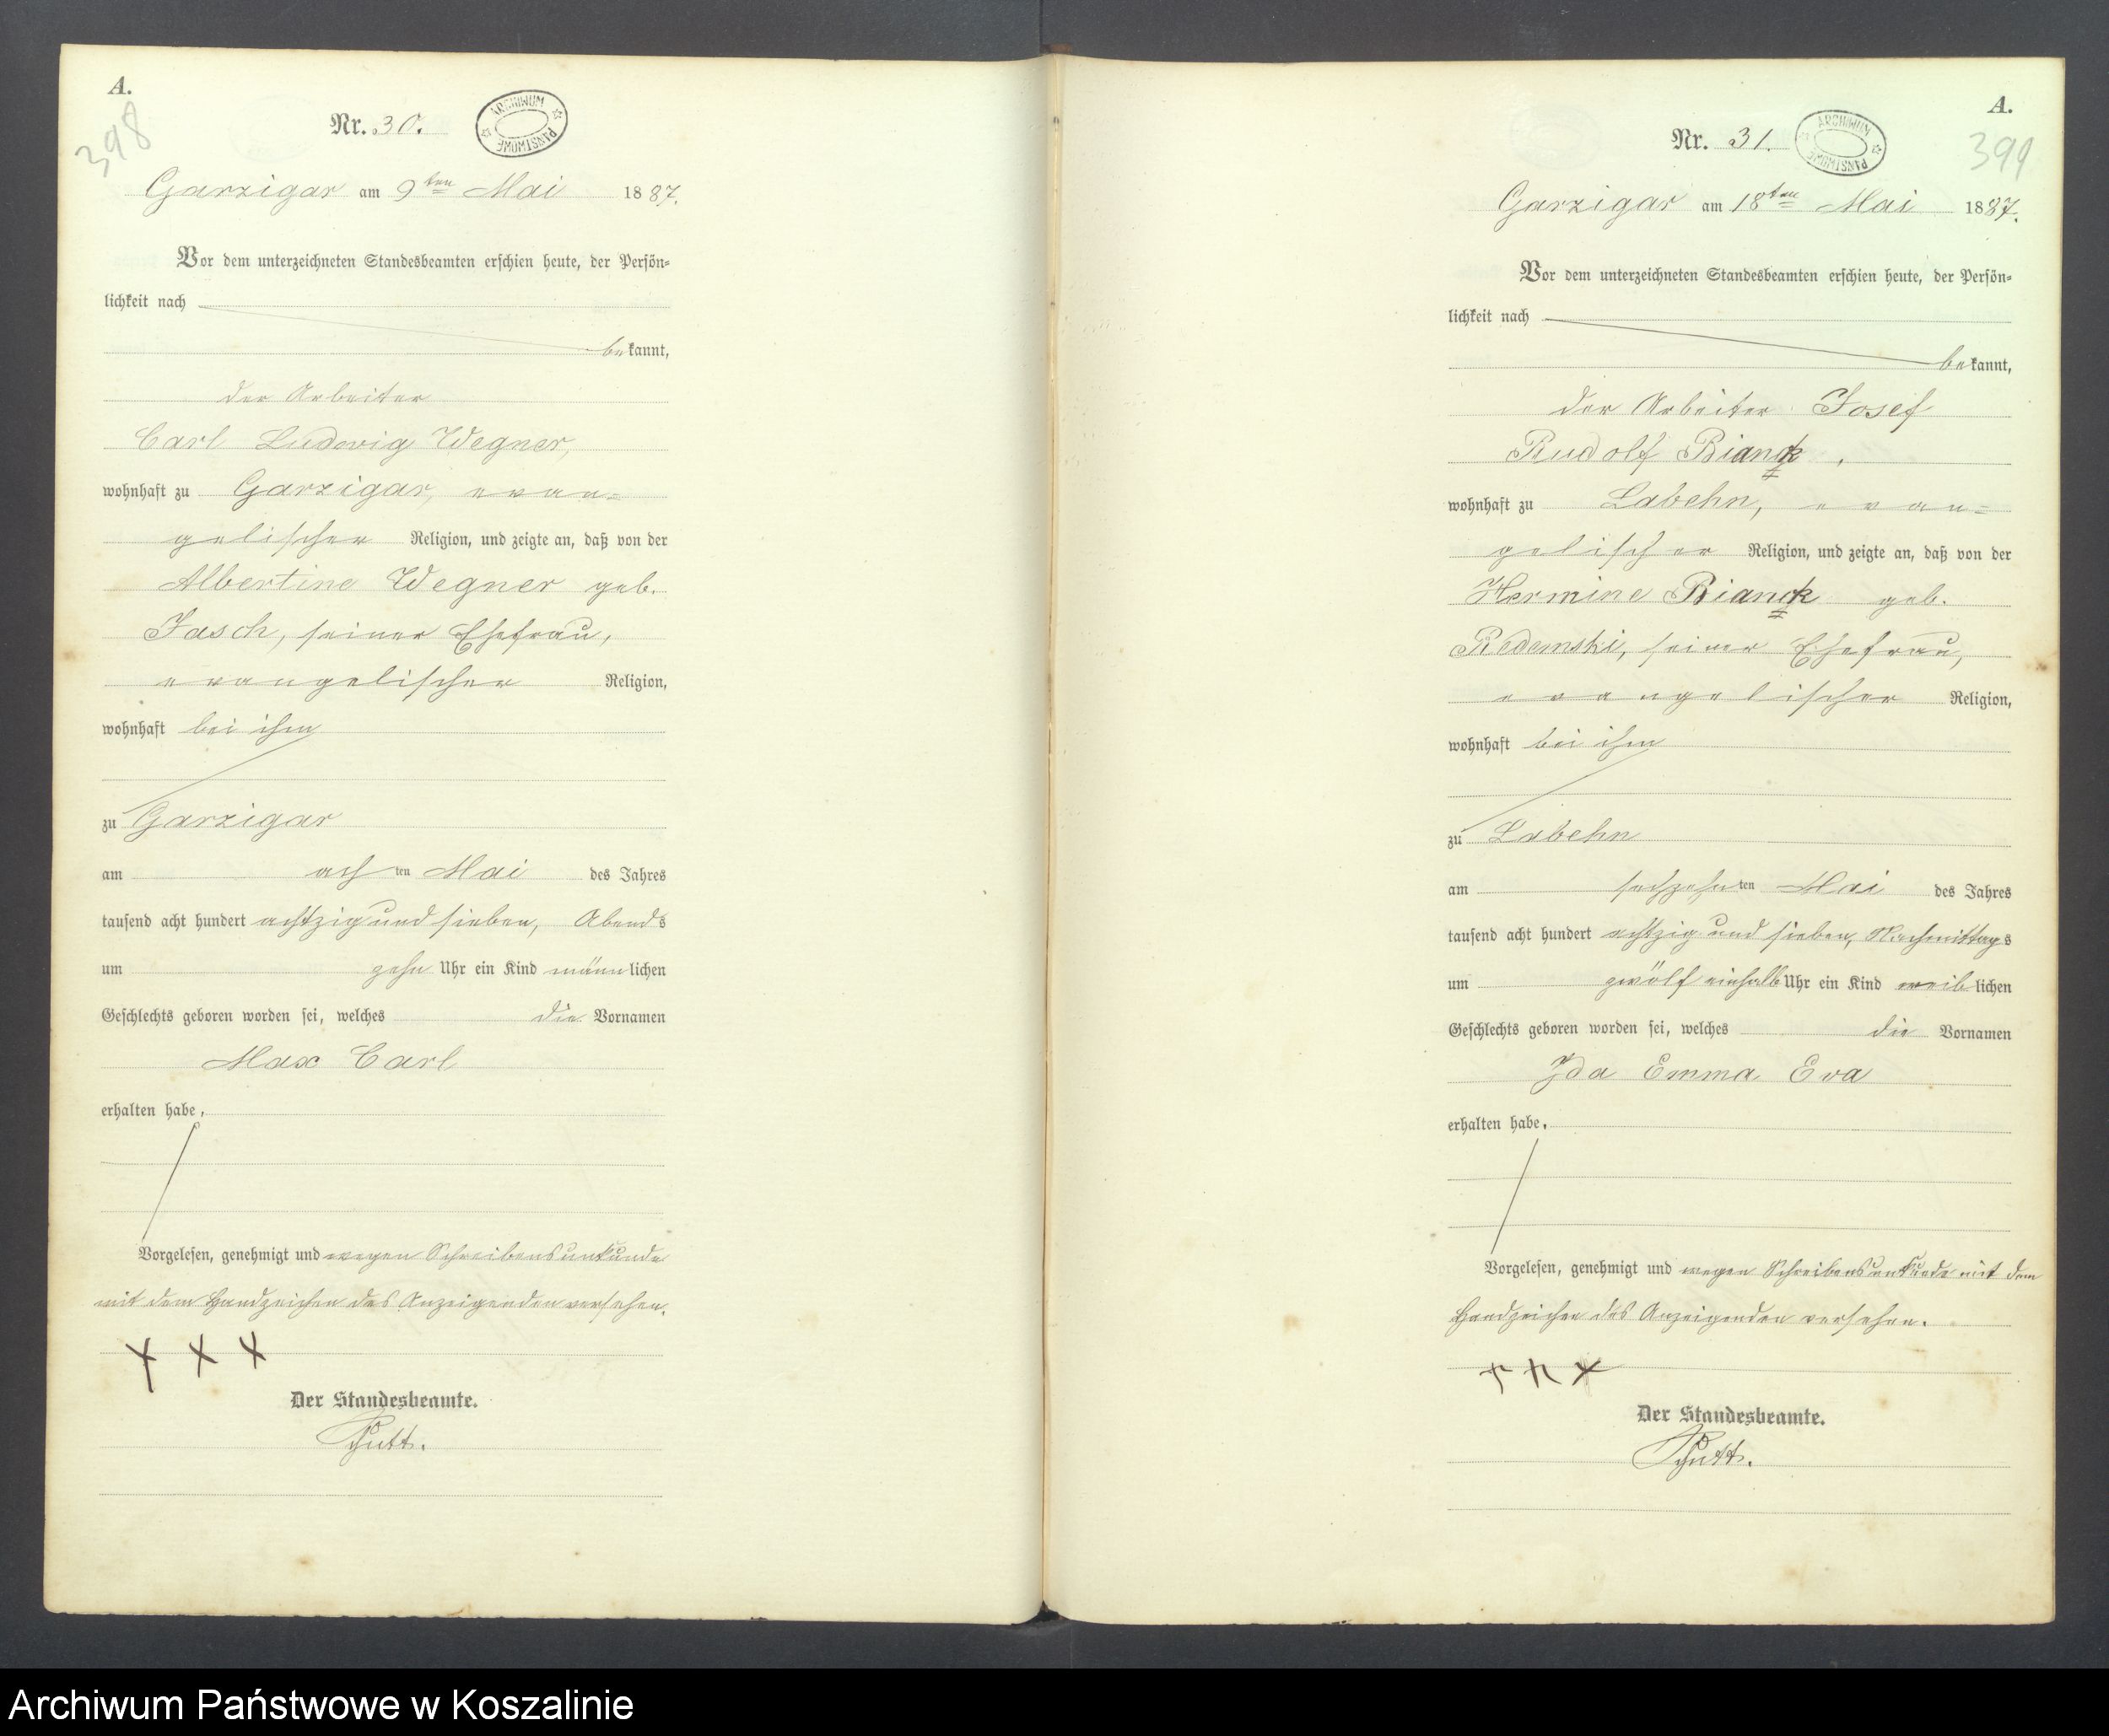 A.
398
Nr. 30.
ARCHIWUM PAŃSTWOWE
Garzigar am 9ten Mai 1887.
Vor dem unterzeichneten Standesbeamten erschien heute, der Persön-
lichkeit nach
bekannt,
der Arbeiter
Carl Ludwig Wegner,
wohnhaft zu Garzigar, evan-
gelischer Religion, und zeigte an, daß von der
Albertine Wegner geb.
Jasch, seiner Ehefrau,
evangelischer Religion,
wohnhaft bei ihm
zu Garzigar
am achten Mai des Jahres
tausend acht hundert achtzig und sieben, Abends
um zehn Uhr ein Kind männlichen
Geschlechts geboren worden sei, welches die Vornamen
Max Carl
erhalten habe.
Vorgelesen, genehmigt und wegen Schreibensunkunde
mit dem Handzeichen des Anzeigenden versehen.
+ + +
Der Standesbeamte.
A.
399
Nr. 31.
ARCHIWUM PAŃSTWOWE
Garzigar am 18ten Mai 1887.
Vor dem unterzeichneten Standesbeamten erschien heute, der Persön-
lichkeit nach
bekannt,
der Arbeiter Josef
Rudolf Bianck,
wohnhaft zu Labehn, evan-
gelischer Religion, und zeigte an, daß von der
Hermine Bianck geb.
Redemski, seiner Ehefrau,
evangelischer Religion,
wohnhaft bei ihm
zu Labehn
am sechzehnten Mai des Jahres
tausend acht hundert achtzig und sieben, Nachmittags
um zwölf einhalb Uhr ein Kind weiblichen
Geschlechts geboren worden sei, welches die Vornamen
Ida Emma Eva
erhalten habe.
Vorgelesen, genehmigt und wegen Schreibensunkunde mit dem
Handzeichen des Anzeigenden versehen.
+ + +
Der Standesbeamte.
Archiwum Państwowe w Koszalinie